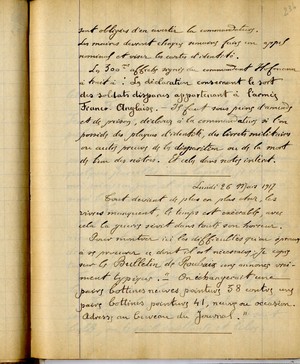 sont obligées d'en avertir la commandature.
Les maires devront chaque semaine faire un appel
nominal et viser les cartes d'identité.
La 300me affiche signée du commandant Hofmann
a trait à : La déclaration concernant le sort
des soldats disparus appartenant à l'armée
Franco-Anglaise. — Il faut sous peine d'amende
et de prison, déclarer à la commandature si l'on
possède des plaques d'identité, des livrets militaires
ou autres preuves de la disparition ou de la mort
de l'un des nôtres. Et cela dans notre intérêt.
Lundi 26 Mars 1917
Tout devient de plus en plus cher, les
vivres manquent, le temps est exécrable, avec
cela la guerre sévit dans toute son horreur.
Pour montrer ici les difficultés qu'on éprouve
à se procurer ce dont il est nécessaire. Je copie
sur le Bulletin de Roubaix une annonce vrai-
ment typique. — On échangerait une
paire bottines neuves pointure 38 contre une
paire bottines pointure 41, neuve ou occasion.
Adress. au bureau du Journal."